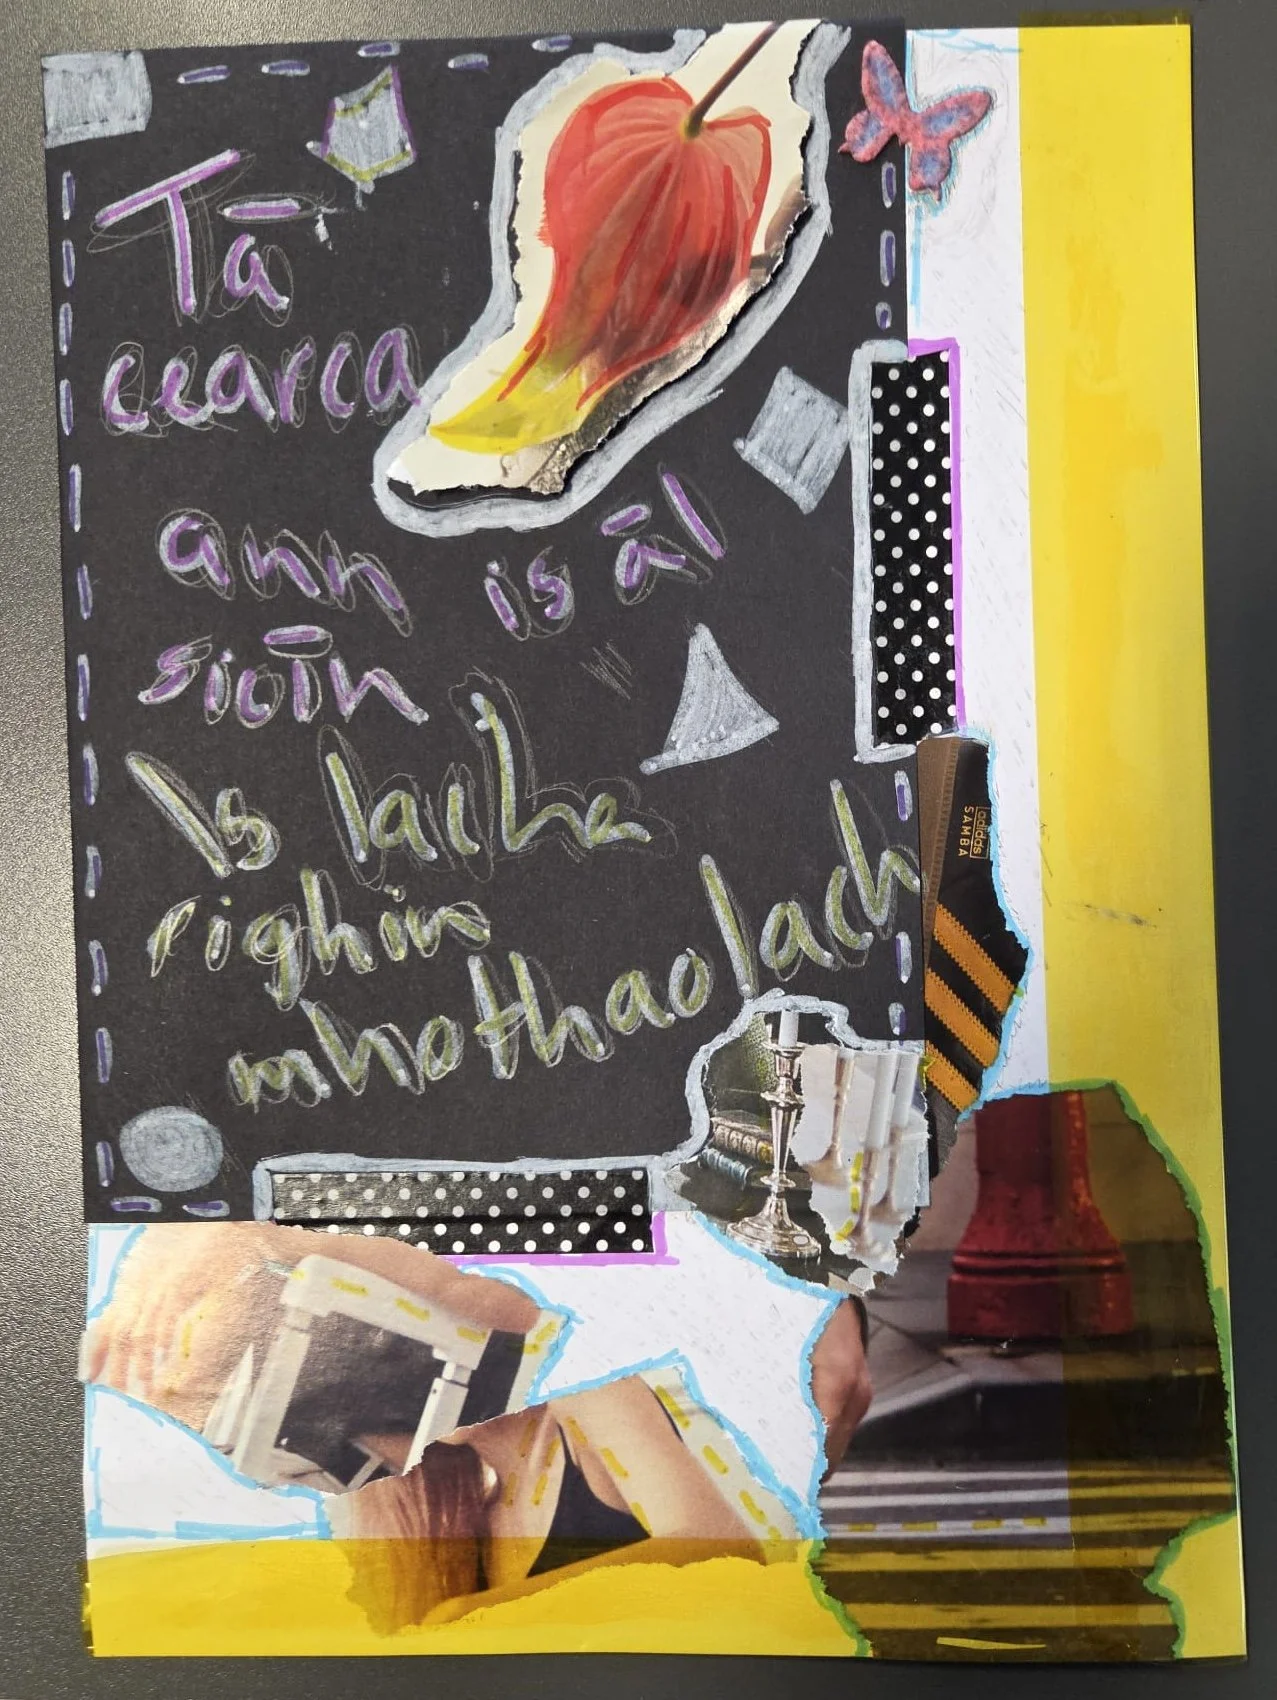 Tā
cearca
ann is āl
sicīn
Is lacha
righin
mhothaolach
adidas
SAMBA